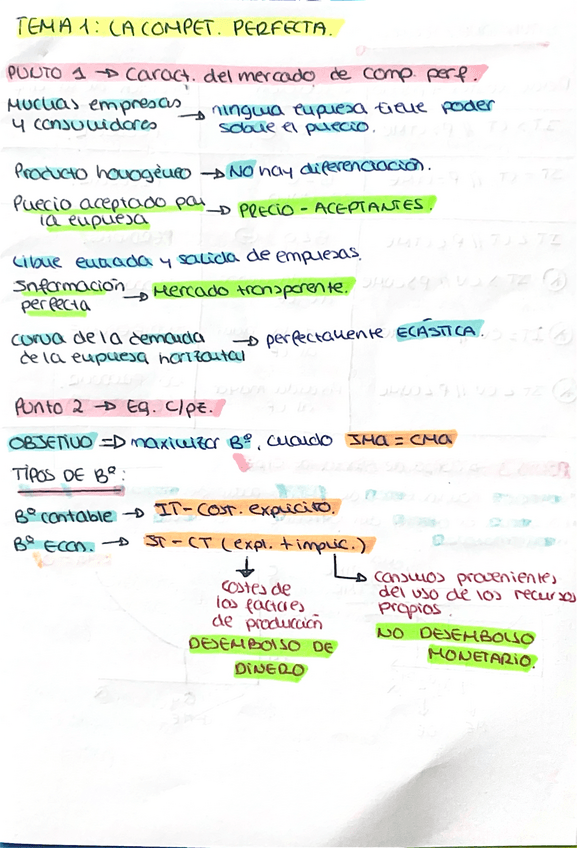 TEMA 1: LA COMPET. PERFECTA.
PUNTO 1 → Caract. del mercado de comp. perf.
Muchas empresas → ninguna empresa tiene poder
y consumidores sobre el precio.
Producto homogéneo → NO hay diferenciación.
Precio aceptado por → PRECIO - ACEPTANTES.
la empresa
Libre entrada y salida de empresas.
Información → Mercado transparente.
perfecta
curva de la demanda → perfectamente ELÁSTICA.
de la empresa horizontal
Punto 2 → EQ. C/PE.
OBJETIVO ⇒ maximizar Bº, cuando IMa = CMa
TIPOS DE Bº:
Bº contable → IT - Cost. explicito.
Bº Econ. → IT - CT (expl. + implic.)
costes de
los factores
de producción
DESEMBOLSO DE
DINERO
consumos provenientes
del uso de los recursos
propios.
NO DESEMBOLSO
MONETARIO.